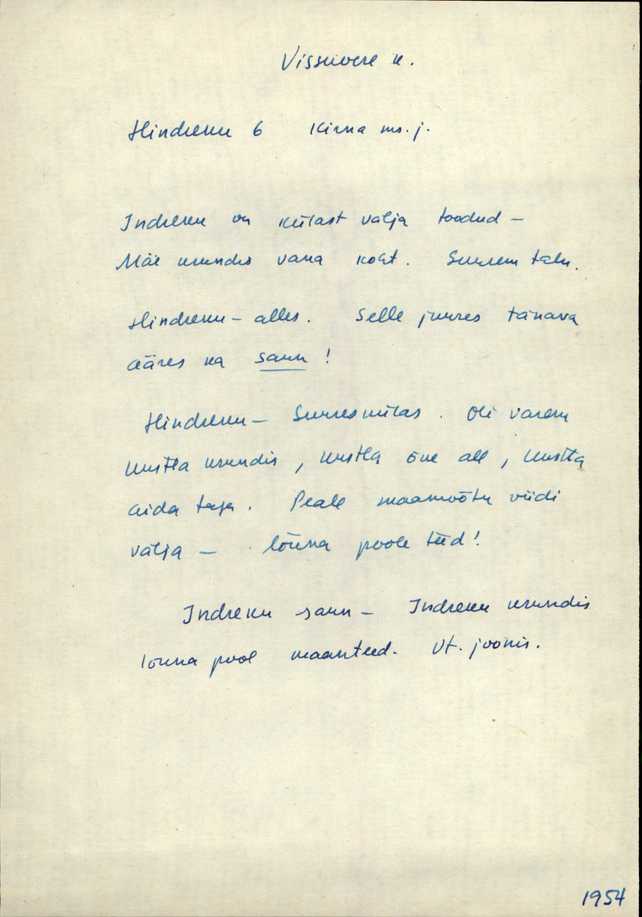 Vissuvere k.
Hindreku 6 Kirna ms. j.
Indreku on külast välja toodud –
Mäe krundis vana koht. Suurem talu.
Hindreku – alles. Selle juures tänava
ääres ka saun!
Hindreku – Suureskülas. Oli varem
Kustla krundis, Kustla õue all, Kustla
aida taga. Peale maamõõtu viidi
välja – lõuna poole teed!
Indreku saun – Indreku krundis
lõuna pool maanteed. Vt. joonis.
1954